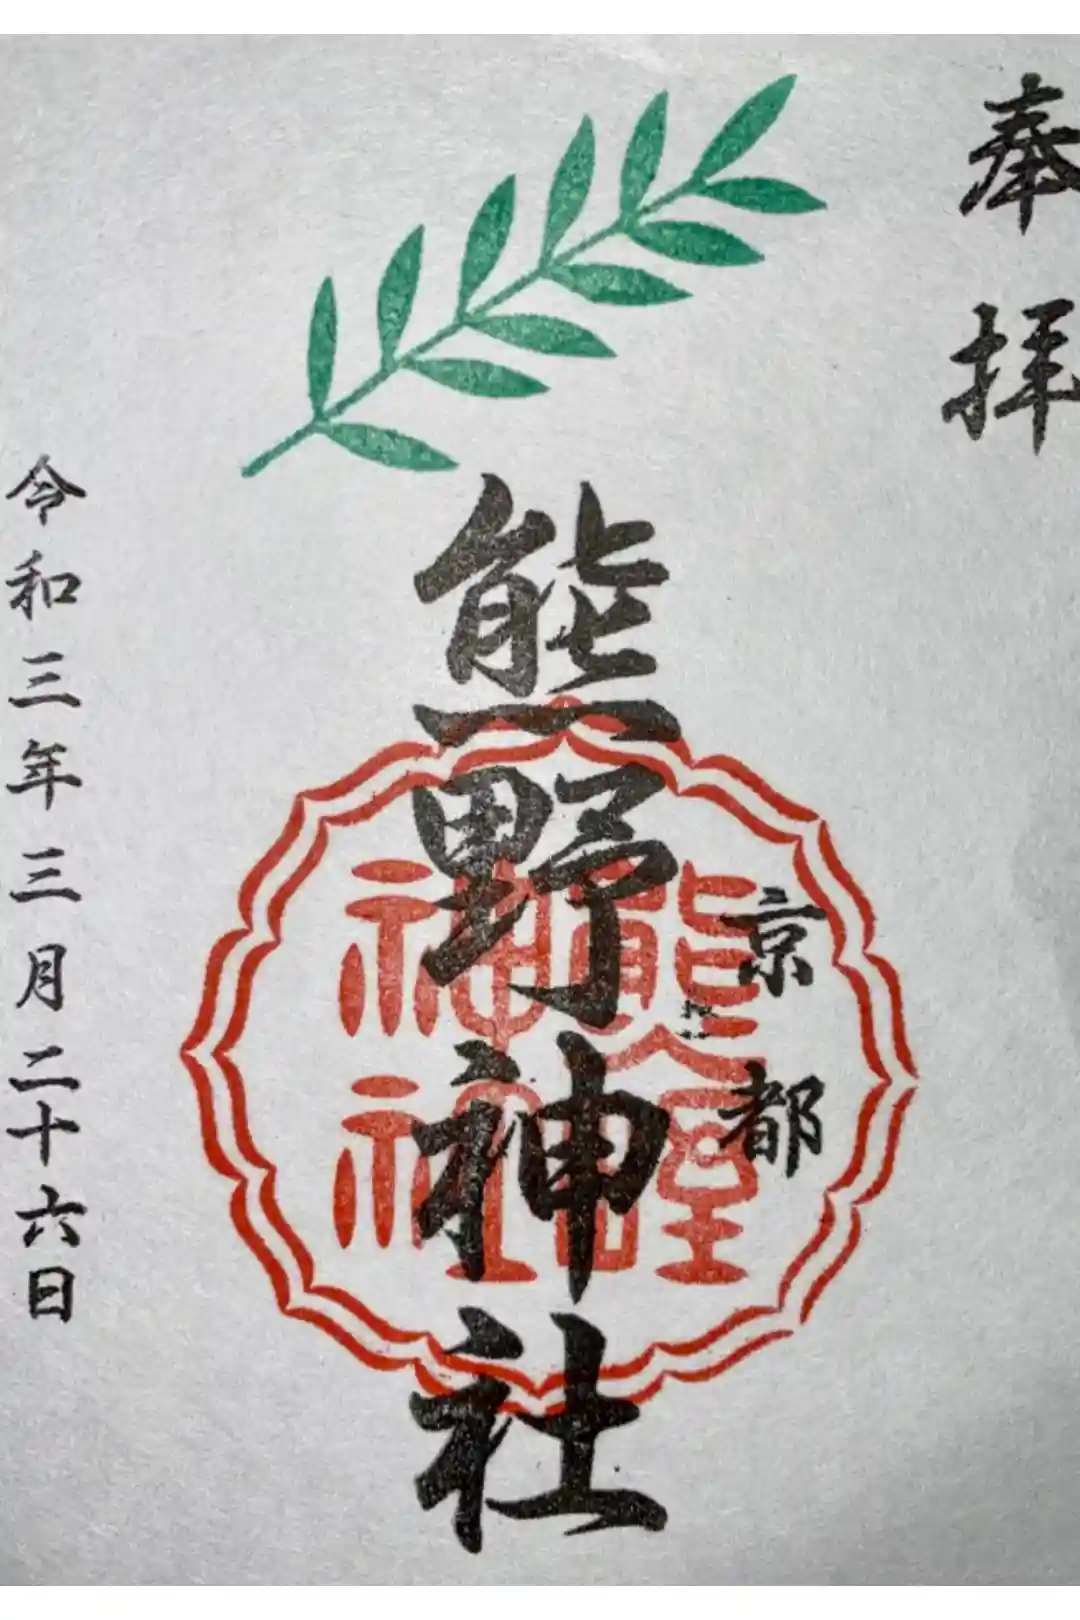 奉拝
京都
熊野神社
熊野神社
令和三年三月二十六日